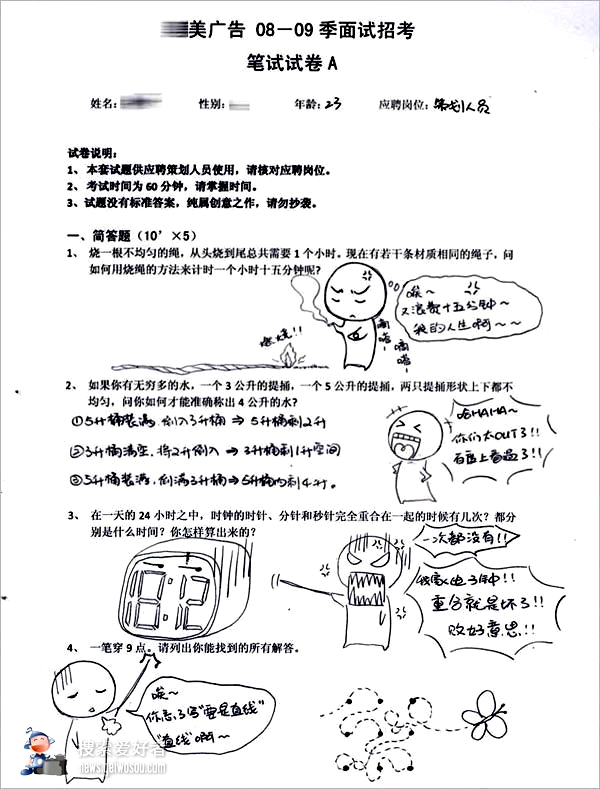 美广告 08－09 季面试招考
笔试试卷 A
姓名:
性别:
年龄: 23
应聘岗位: 策划人员
试卷说明:
1、 本套试题供应聘策划人员使用，请核对应聘岗位。
2、 考试时间为 60 分钟，请掌握时间。
3、 试题没有标准答案，纯属创意之作，请勿抄袭。
一、简答题（10’×5）
1、 烧一根不均匀的绳，从头烧到尾总共需要 1 个小时。现在有若干条材质相同的绳子，问
如何用烧绳的方法来计时一个小时十五分钟呢?
燃烧!!
嘀嗒
嘀嗒
唉～
又浪费十五分钟～
我的人生啊～～
2、 如果你有无穷多的水，一个 3 公升的提捅，一个 5 公升的提捅，两只提捅形状上下都不
均匀，问你如何才能准确称出 4 公升的水?
①5升桶装满, 倒入3升桶 ⇒ 5升桶剩2升
②3升桶清空, 将2升倒入 ⇒ 3升桶剩1升空间
③5升桶装满, 倒满3升桶 ⇒ 5升桶内剩4升。
哈HAHA～
你们太OUT了!!
百度上看过了!!
3、 在一天的 24 小时之中，时钟的时针、分针和秒针完全重合在一起的时候有几次? 都分
别是什么时间? 你怎样算出来的?
一次都没有!!
10:12
重合就是坏了!!
败好意思!!
4、 一笔穿 9 点。请列出你能找到的所有解答。
唉～
你忘了写“要是直线”
“直线”啊～
搜索爱好者
news.peiwosou.com